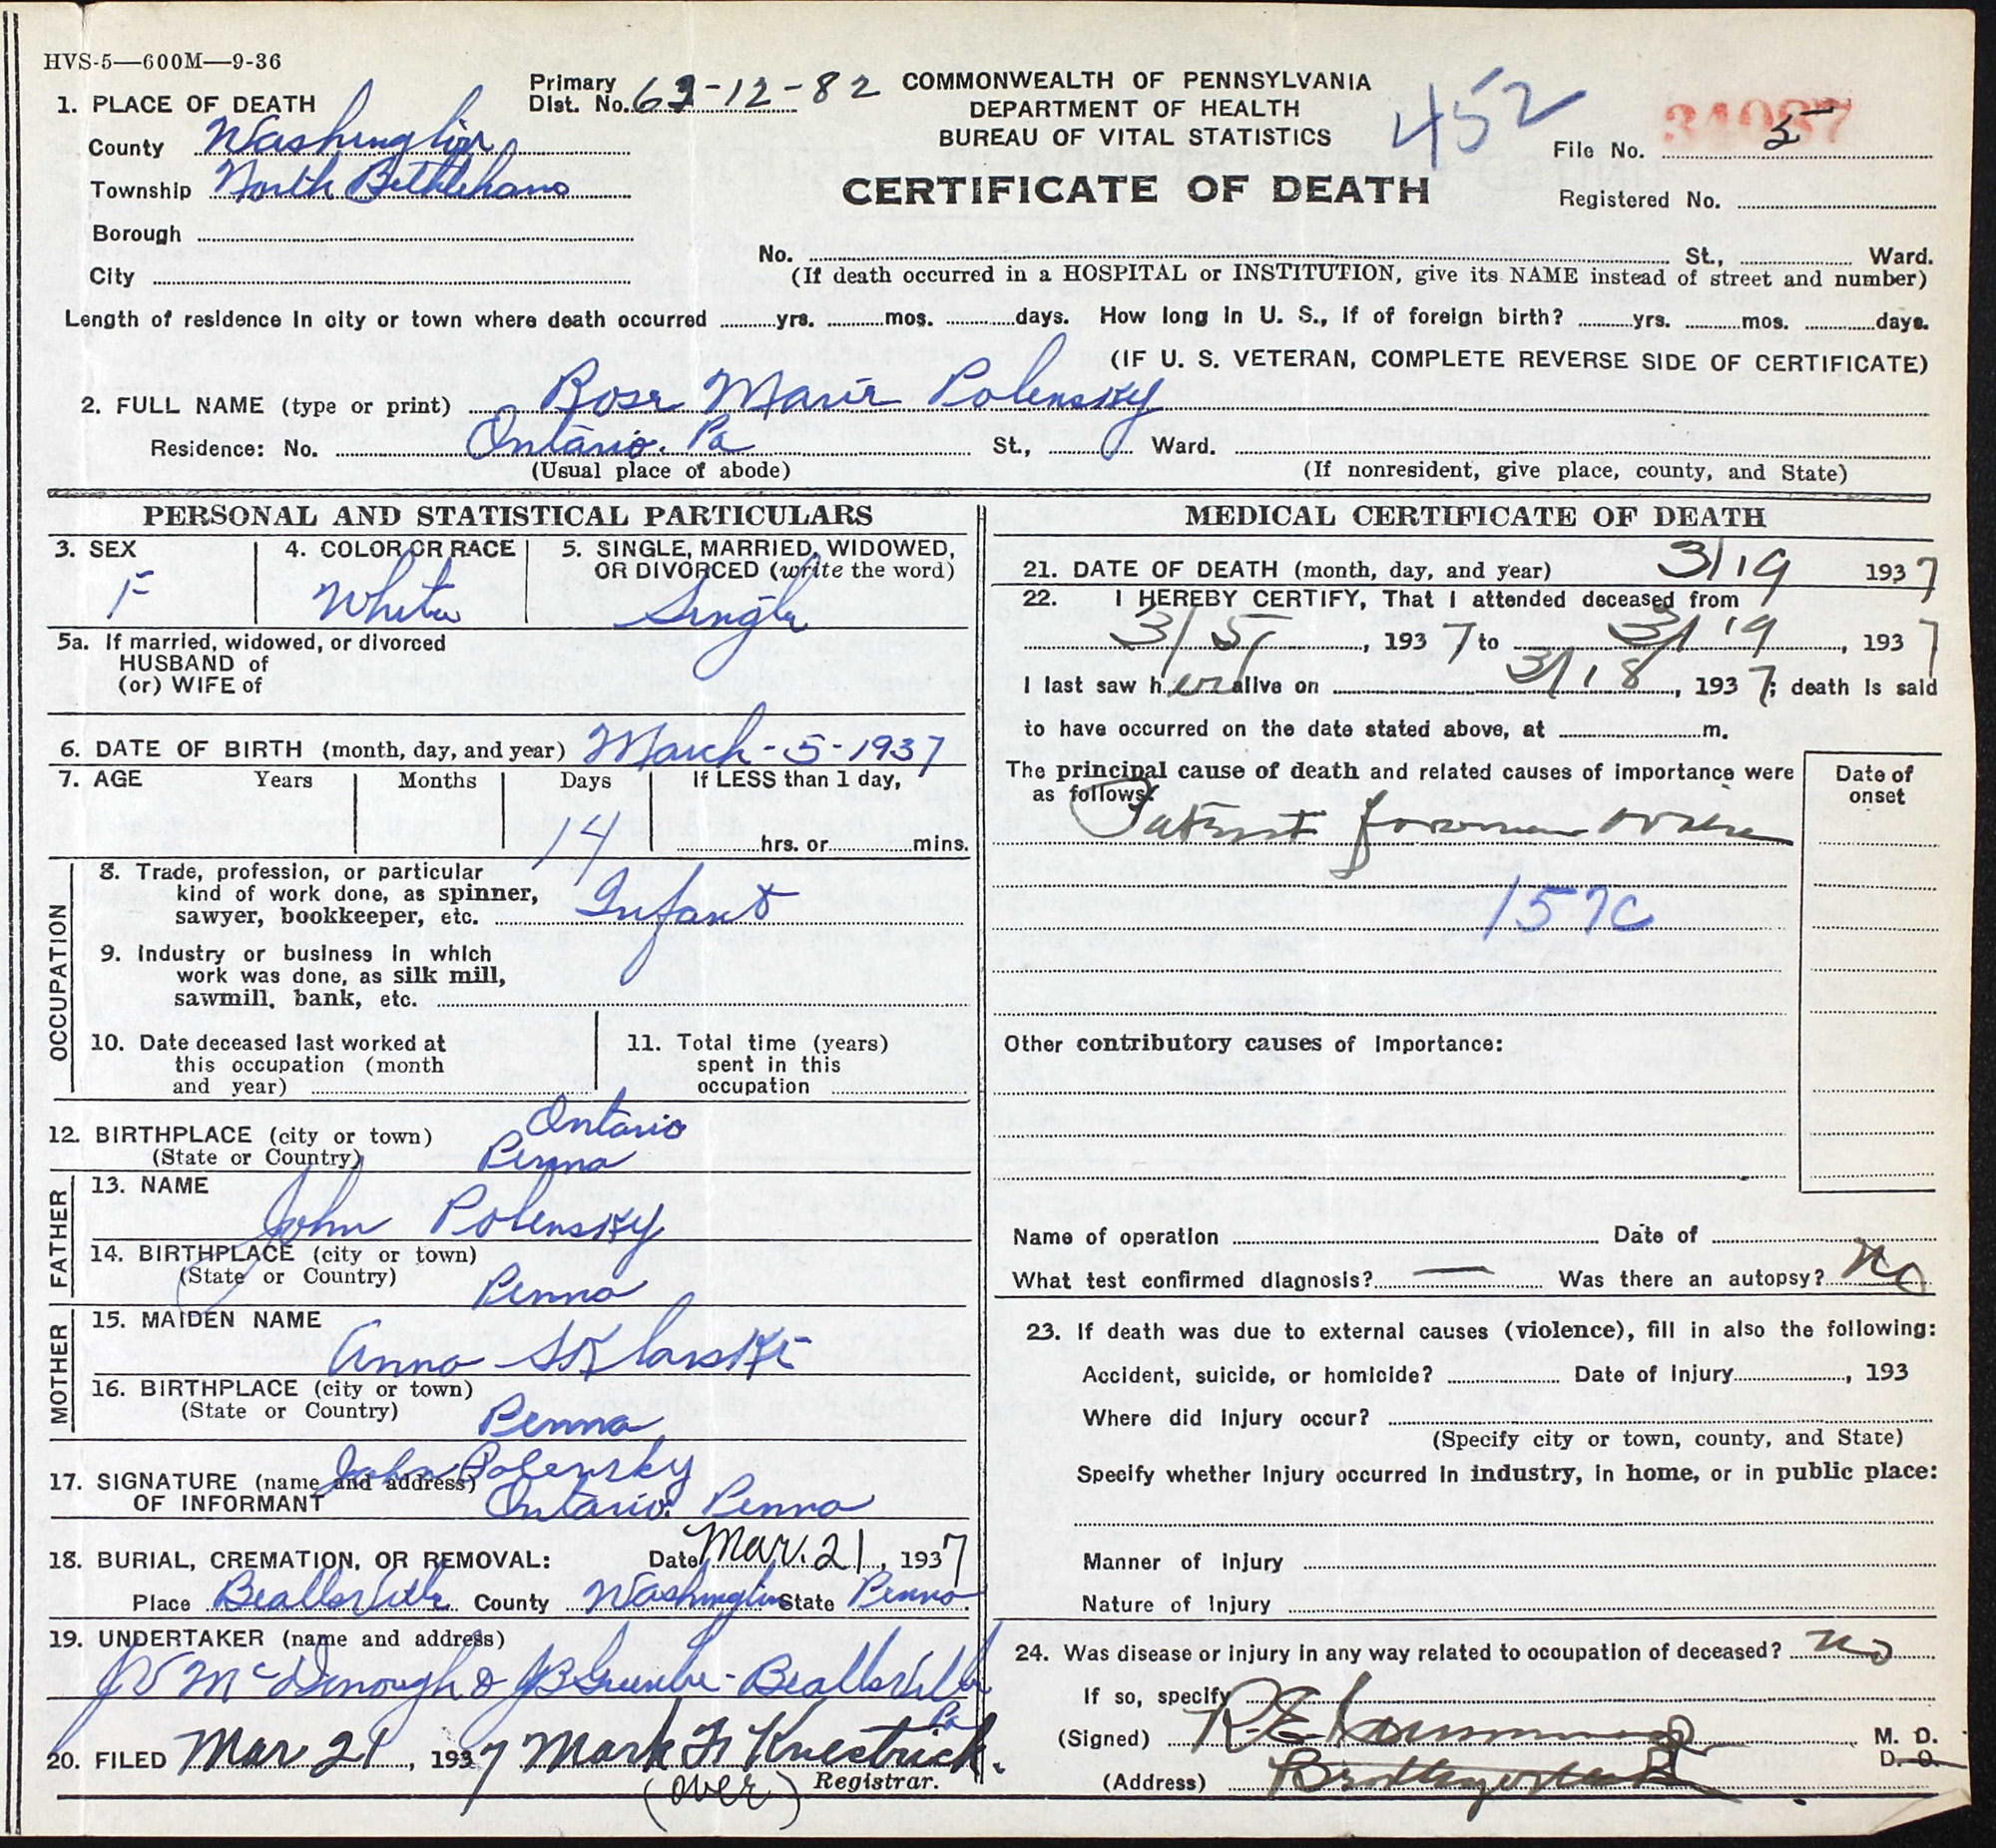 HVS-5—600M—9-36
1. PLACE OF DEATH
Primary
Dist. No. 63-12-82
COMMONWEALTH OF PENNSYLVANIA
DEPARTMENT OF HEALTH
BUREAU OF VITAL STATISTICS
CERTIFICATE OF DEATH
452
34087
File No. 5
Registered No.
County Washington
Township North Bethlehem
Borough
City
No. St., Ward.
(If death occurred in a HOSPITAL or INSTITUTION, give its NAME instead of street and number)
Length of residence in city or town where death occurred yrs. mos. days. How long in U. S., if of foreign birth? yrs. mos. days.
(IF U. S. VETERAN, COMPLETE REVERSE SIDE OF CERTIFICATE)
2. FULL NAME (type or print) Rose Marie Polensky
Residence: No. Ontario. Pa St., Ward.
(Usual place of abode) (If nonresident, give place, county, and State)
PERSONAL AND STATISTICAL PARTICULARS
3. SEX
F
4. COLOR OR RACE
White
5. SINGLE, MARRIED, WIDOWED,
OR DIVORCED (write the word)
Single
5a. If married, widowed, or divorced
HUSBAND of
(or) WIFE of
6. DATE OF BIRTH (month, day, and year) March-5-1937
7. AGE Years Months Days If LESS than 1 day,
14 hrs. or mins.
OCCUPATION
8. Trade, profession, or particular
kind of work done, as spinner,
sawyer, bookkeeper, etc. Infant
9. Industry or business in which
work was done, as silk mill,
sawmill, bank, etc.
10. Date deceased last worked at
this occupation (month
and year)
11. Total time (years)
spent in this
occupation
12. BIRTHPLACE (city or town) Ontario
(State or Country) Penna
FATHER
13. NAME
John Polensky
14. BIRTHPLACE (city or town)
(State or Country) Penna
MOTHER
15. MAIDEN NAME
Anna Sklarski
16. BIRTHPLACE (city or town)
(State or Country) Penna
17. SIGNATURE (name and address) John Polensky
OF INFORMANT Ontario. Penna
18. BURIAL, CREMATION, OR REMOVAL: Date Mar. 21, 1937
Place Beallsville County Washington State Penna
19. UNDERTAKER (name and address)
McDonough & Beallsville
Pa
20. FILED Mar 21, 1937 Mark F. Knestrick.
(over) Registrar.
MEDICAL CERTIFICATE OF DEATH
21. DATE OF DEATH (month, day, and year) 3/19 1937
22. I HEREBY CERTIFY, That I attended deceased from
3/5, 1937 to 3/19, 1937
I last saw her alive on 3/18, 1937; death is said
to have occurred on the date stated above, at m.
The principal cause of death and related causes of importance were
as follows:
Date of
onset
Patent foramen ovale
157C
Other contributory causes of importance:
Name of operation Date of
What test confirmed diagnosis? — Was there an autopsy? No
23. If death was due to external causes (violence), fill in also the following:
Accident, suicide, or homicide? Date of injury , 193
Where did injury occur?
(Specify city or town, county, and State)
Specify whether injury occurred in industry, in home, or in public place:
Manner of injury
Nature of injury
24. Was disease or injury in any way related to occupation of deceased? no
If so, specify
(Signed) R.E. M. D.
D. O.
(Address)